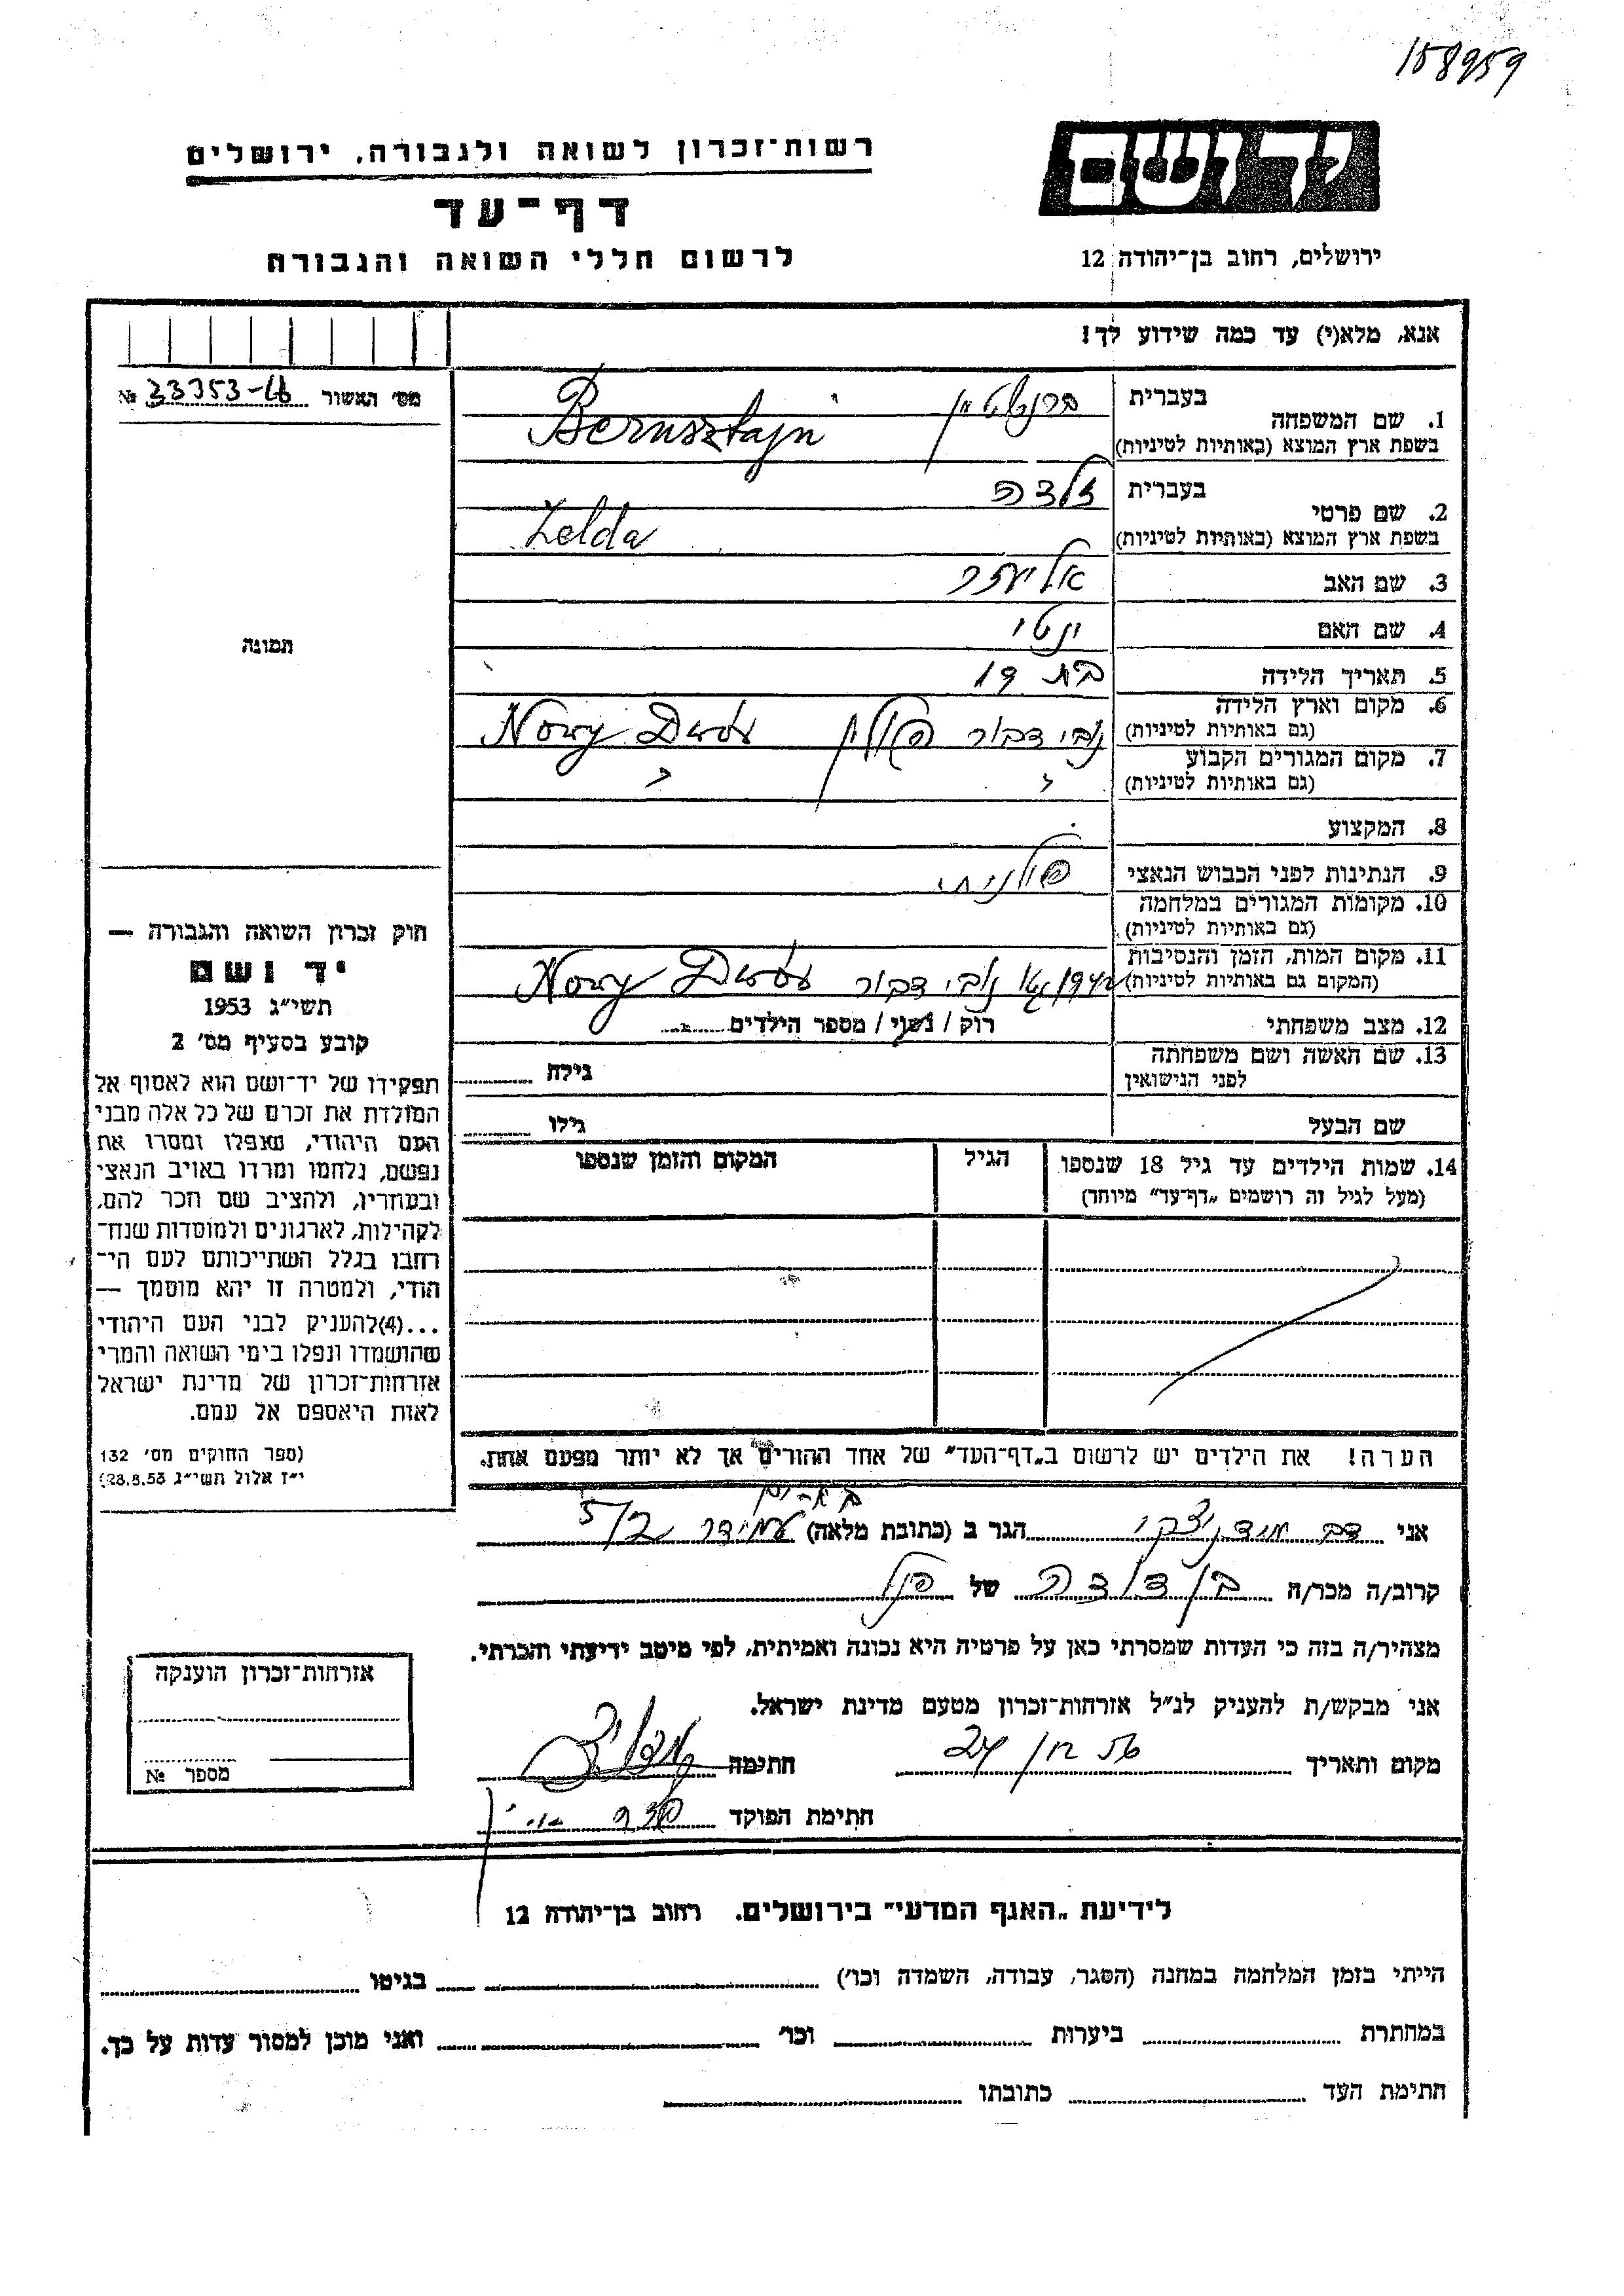 158959
יד ושם
רשות־זכרון לשואה ולגבורה, ירושלים
דף־עד
לרשום חללי השואה והגבורה
ירושלים, רחוב בן־יהודה 12
אנא, מלא(י) עד כמה שידוע לך!
מס׳ האשור № 33353-46
1. שם המשפחה
בעברית ברנשטיין
בשפת ארץ המוצא (באותיות לטיניות) Bernsztajn
2. שם פרטי
בעברית זלדה
בשפת ארץ המוצא (באותיות לטיניות) Zelda
3. שם האב אליעזר
4. שם האם
5. תאריך הלידה בת 19
6. מקום וארץ הלידה
(גם באותיות לטיניות) נובי דבור פולין Nowy Dwór
7. מקום המגורים הקבוע
(גם באותיות לטיניות)
8. המקצוע
9. הנתינות לפני הכבוש הנאצי פולנית
10. מקומות המגורים במלחמה
(גם באותיות לטיניות)
11. מקום המות, הזמן והנסיבות
(המקום גם באותיות לטיניות) 1942 נובי דבור Nowy Dwór
12. מצב משפחתי רוק / נשוי / מספר הילדים
13. שם האשה ושם משפחתה
לפני הנישואין
גילה
שם הבעל
גילו
14. שמות הילדים עד גיל 18 שנספו
(מעל לגיל זה רושמים „דף־עד״ מיוחד)
הגיל
המקום והזמן שנספו
תמונה
חוק זכרון השואה והגבורה —
יד ושם
תשי״ג 1953
קובע בסעיף מס׳ 2
תפקידו של יד־ושם הוא לאסוף אל
המולדת את זכרם של כל אלה מבני
העם היהודי, שנפלו ומסרו את
נפשם, נלחמו ומרדו באויב הנאצי
ובעוזריו, ולהציב שם וזכר להם,
לקהילות, לארגונים ולמוסדות שנח־
רחבו בגלל השתייכותם לעם הי־
הודי, ולמטרה זו יהא מוסמך —
...(4) להעניק לבני העם היהודי
שהושמדו ונפלו בימי השואה והמרי
אזרחות־זכרון של מדינת ישראל
לאות היאספם אל עמם.
(ספר החוקים מס׳ 132
י״ז אלול תשי״ג 28.8.53)
הערה! את הילדים יש לרשום ב„דף־העד״ של אחד ההורים אך לא יותר מפעם אחת.
אני דב הגר ב (כתובת מלאה) עמידר 5/2
קרוב/ה מכר/ה בן דודה של הנ״ל
מצהיר/ה בזה כי העדות שמסרתי כאן על פרטיה היא נכונה ואמיתית, לפי מיטב ידיעתי והכרתי.
אני מבקש/ת להעניק לנ״ל אזרחות־זכרון מטעם מדינת ישראל.
מקום ותאריך חתימה
חתימת הפוקד
אזרחות־זכרון הוענקה
מספר №
לידיעת „האגף המדעי״ בירושלים. רחוב בן־יהודה 12
הייתי בזמן המלחמה במחנה (הסגר, עבודה, השמדה וכו׳) בגיטו
במחתרת ביערות וכו׳ ואני מוכן למסור עדות על כך.
חתימת העד כתובתו